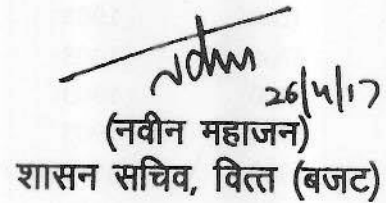 26/4/17
(नवीन महाजन)
शासन सचिव, वित्त (बजट)